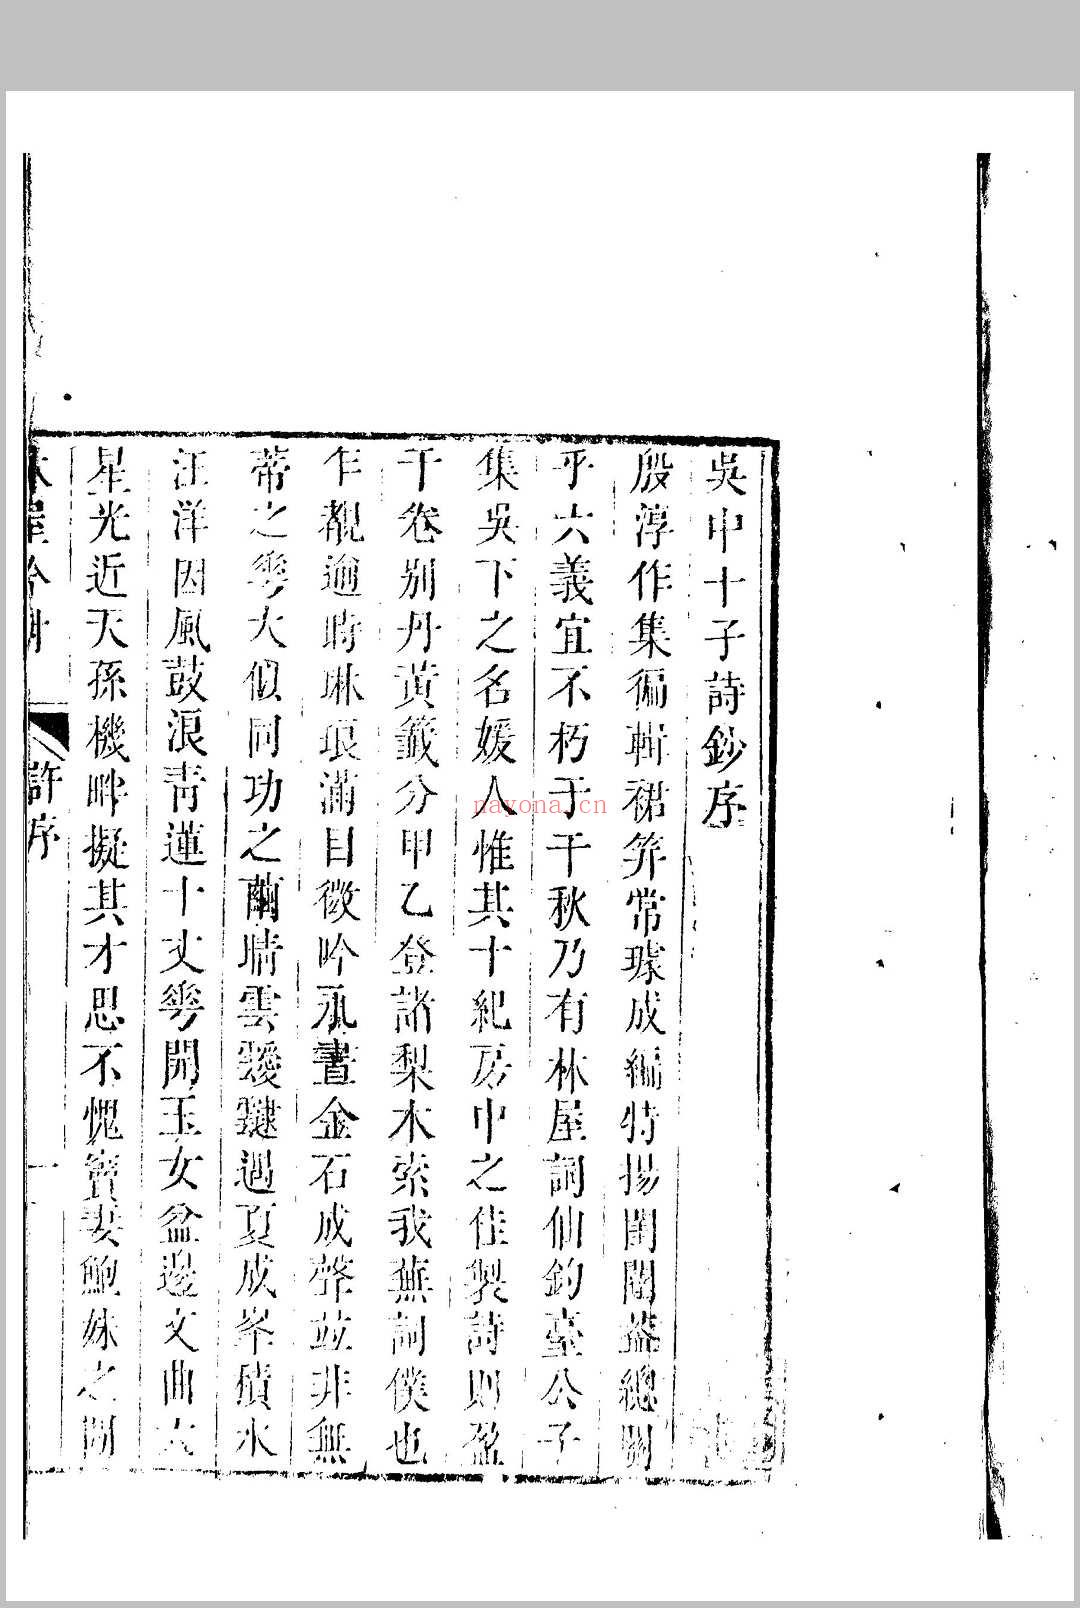 吳中十子詩鈔序
殷淳作集徧輯裙筓常璩成編特揚閨閣葢總關
乎六義宜不朽于千秋乃有林屋詞仙鈞臺公子
集吳下之名媛人惟其十紀房中之佳製詩則盈
千卷别丹黃籤分甲乙登諸梨木索我蕪詞僕也
乍覩逾時琳琅滿目微吟永晝金石成聲竝非無
蒂之華大似同功之繭晴雲靉靆遇夏成峯積水
汪洋因風鼓浪靑蓮十丈華開玉女盆邊文曲大
星光近天孫機畔擬其才思不愧竇妻鮑妹之間
林屋吟 許序 一
nayona.cn